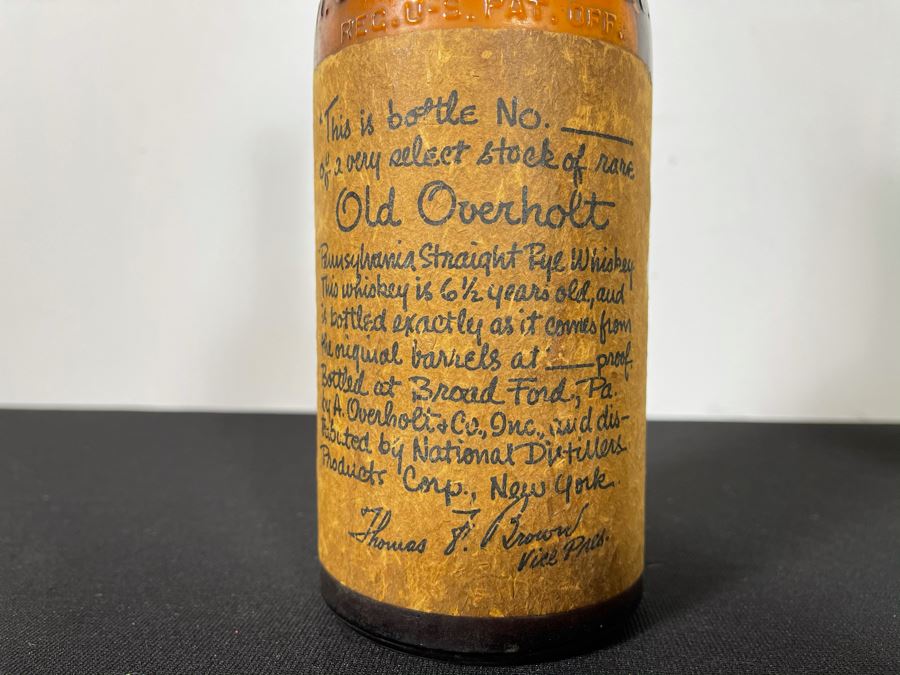 REG. U-S. PAT. OFF.
"This is bottle No. ____
of a very select stock of rare
Old Overholt
Pennsylvania Straight Rye Whiskey
This whiskey is 6½ years old, and
is bottled exactly as it comes from
the original barrels at ____ proof.
Bottled at Broad Ford, Pa.
by A. Overholt & Co., Inc., and dis-
tributed by National Distillers
Products Corp., New York.
Thomas F. Brown
Vice Pres.